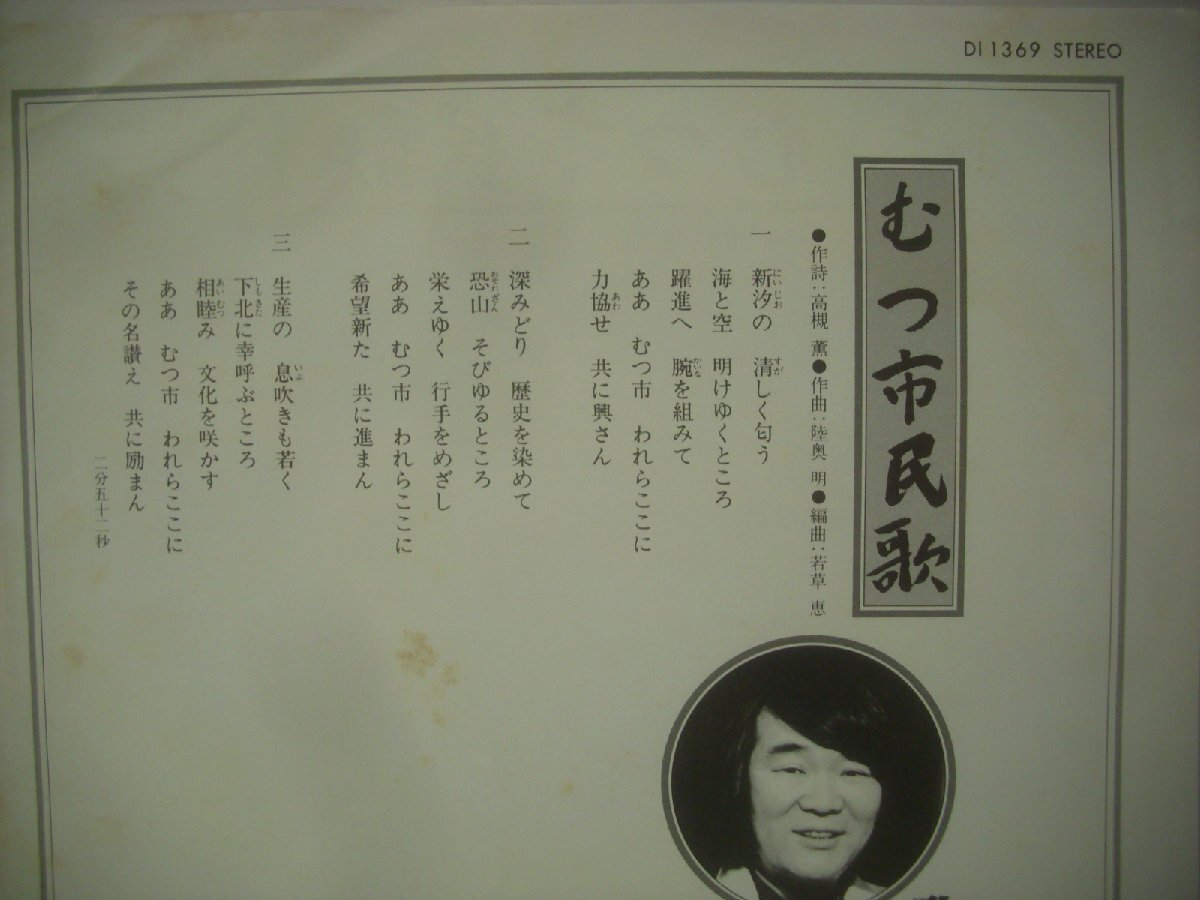 DI 1369 STEREO
むつ市民歌
●作詩：高槻 薫●作曲：陸奥 明●編曲：若草 恵
一 新汐の 清しく匂う
海と空 明けゆくところ
躍進へ 腕を組みて
ああ むつ市 われらここに
力協せ 共に興さん
二 深みどり 歴史を染めて
恐山 そびゆるところ
栄えゆく 行手をめざし
ああ むつ市 われらここに
希望新た 共に進まん
三 生産の 息吹きも若く
下北に幸呼ぶところ
相睦み 文化を咲かす
ああ むつ市 われらここに
その名讃え 共に励まん
二分五十二秒